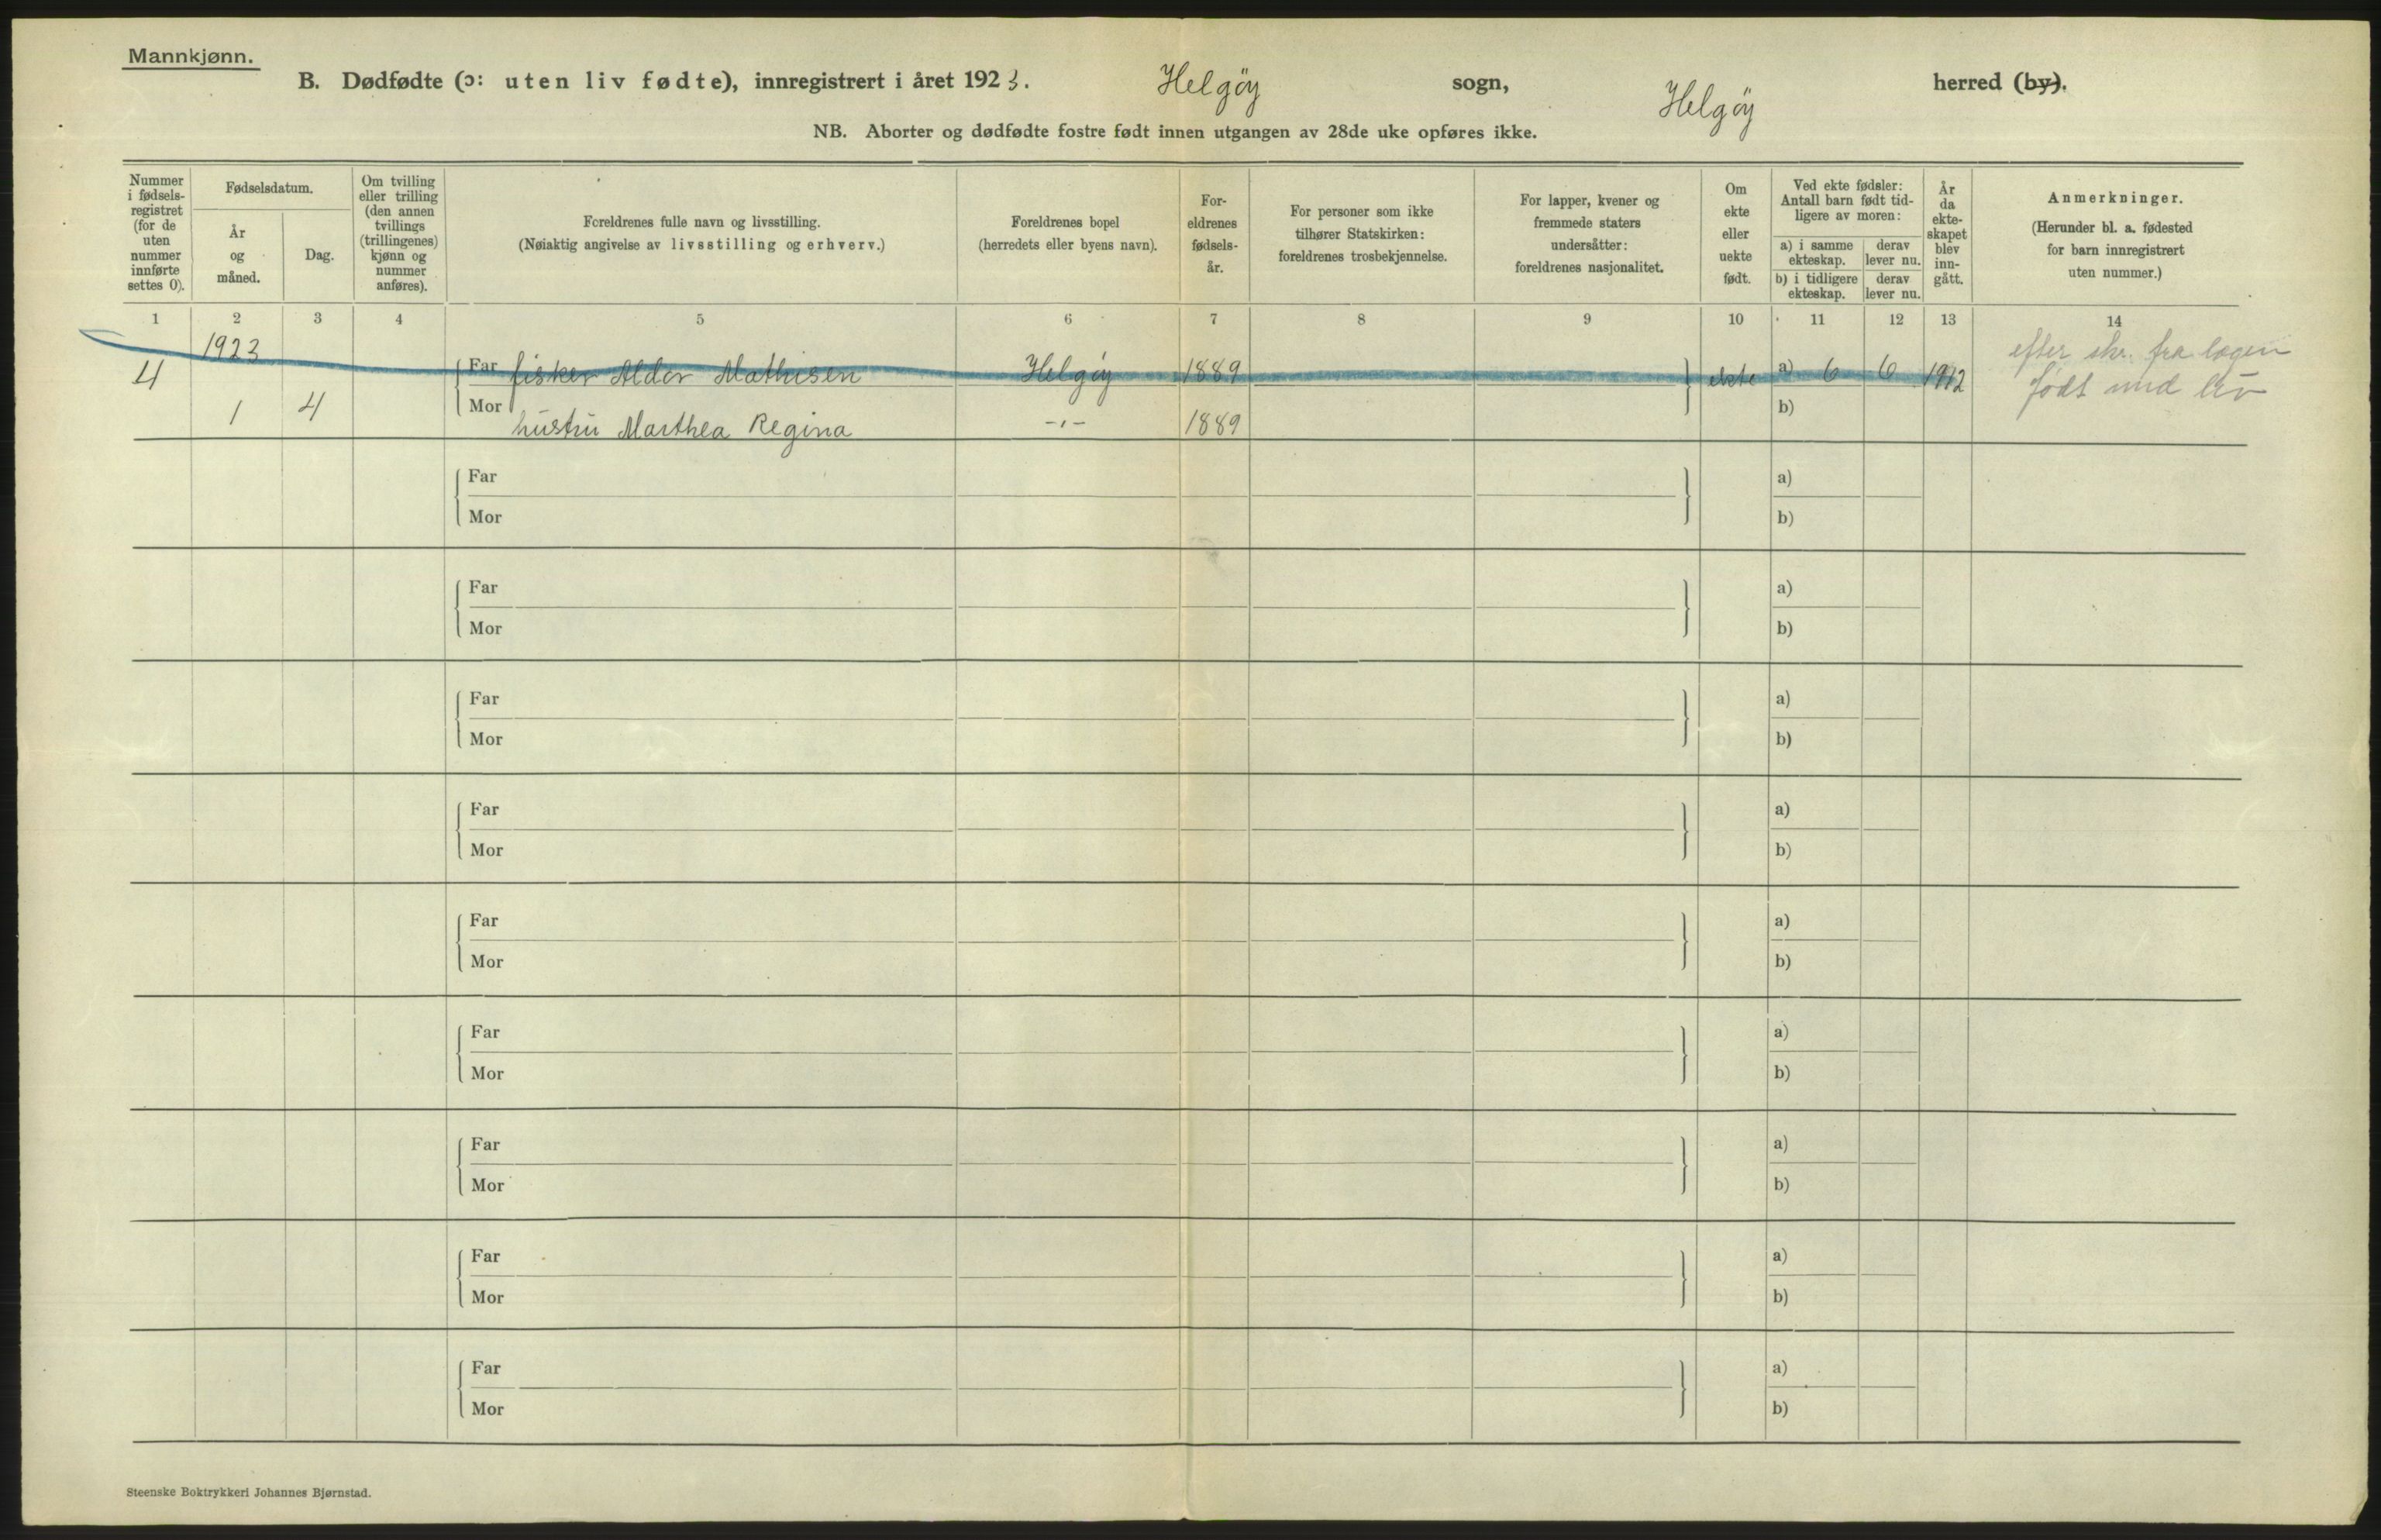 Mannkjønn.
B. Dødfødte (ɔ: uten liv fødte), innregistrert i året 1923. Helgöy sogn, Helgöy herred (by).
NB. Aborter og dødfødte fostre født innen utgangen av 28de uke opføres ikke.
Nummer
i fødsels-
registret
(for de
uten
nummer
innførte
settes 0).
Fødselsdatum.
År
og
måned.
Dag.
Om tvilling
eller trilling
(den annen
tvillings
(trillingenes)
kjønn og
nummer
anføres).
Foreldrenes fulle navn og livsstilling.
(Nøiaktig angivelse av livsstilling og erhverv.)
Foreldrenes bopel
(herredets eller byens navn).
For-
eldrenes
fødsels-
år.
For personer som ikke
tilhører Statskirken:
foreldrenes trosbekjennelse.
For lapper, kvener og
fremmede staters
undersåtter:
foreldrenes nasjonalitet.
Om
ekte
eller
uekte
født.
Ved ekte fødsler:
Antall barn født tid-
ligere av moren:
a) i samme
ekteskap.
derav
lever nu.
b) i tidligere
ekteskap.
derav
lever nu.
År
da
ekte-
skapet
blev
inn-
gått.
Anmerkninger.
(Herunder bl. a. fødested
for barn innregistrert
uten nummer.)
1 2 3 4 5 6 7 8 9 10 11 12 13 14
1923
4 Far fisker Aldor Mathisen Helgöy 1889 ekte a) 6 6 1912 efter skr. fra lægen
1 4 Mor hustru Marthea Regina -"- 1889 b) født med liv
Far a)
Mor b)
Far a)
Mor b)
Far a)
Mor b)
Far a)
Mor b)
Far a)
Mor b)
Far a)
Mor b)
Far a)
Mor b)
Far a)
Mor b)
Far a)
Mor b)
Steenske Boktrykkeri Johannes Bjørnstad.